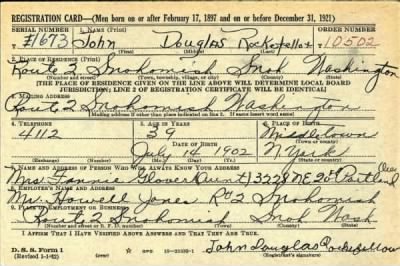 REGISTRATION CARD—(Men born on or after February 17, 1897 and on or before December 31, 1921)
SERIAL NUMBER 1. NAME (Print) ORDER NUMBER
1673 John Douglas Rockefellow 10502
(First) (Middle) (Last)
2. PLACE OF RESIDENCE (Print)
Route 2 Snohomish Snoh Washington
(Number and street) (Town, township, village, or city) (County) (State)
[THE PLACE OF RESIDENCE GIVEN ON THE LINE ABOVE WILL DETERMINE LOCAL BOARD
JURISDICTION; LINE 2 OF REGISTRATION CERTIFICATE WILL BE IDENTICAL]
3. MAILING ADDRESS
Route 2 Snohomish Washington
[Mailing address if other than place indicated on line 2. If same insert word same]
4. TELEPHONE 5. AGE IN YEARS 6. PLACE OF BIRTH
4112 39 Middletown
DATE OF BIRTH (Town or county)
July 14 1902 N. York
(Exchange) (Number) (Mo.) (Day) (Yr.) (State or country)
7. NAME AND ADDRESS OF PERSON WHO WILL ALWAYS KNOW YOUR ADDRESS
Mrs Glover (Aunt) 3228 NE 20th Portland Ore
8. EMPLOYER'S NAME AND ADDRESS
Mr. Howell Jones Rt 2 Snohomish
9. PLACE OF EMPLOYMENT OR BUSINESS
Route 2 Snohomish Snoh Wash
(Number and street or R. F. D. number) (Town) (County) (State)
I AFFIRM THAT I HAVE VERIFIED ABOVE ANSWERS AND THAT THEY ARE TRUE.
D. S. S. Form 1
(Revised 1-1-42) John Douglas Rockefellow
(Registrant's signature)